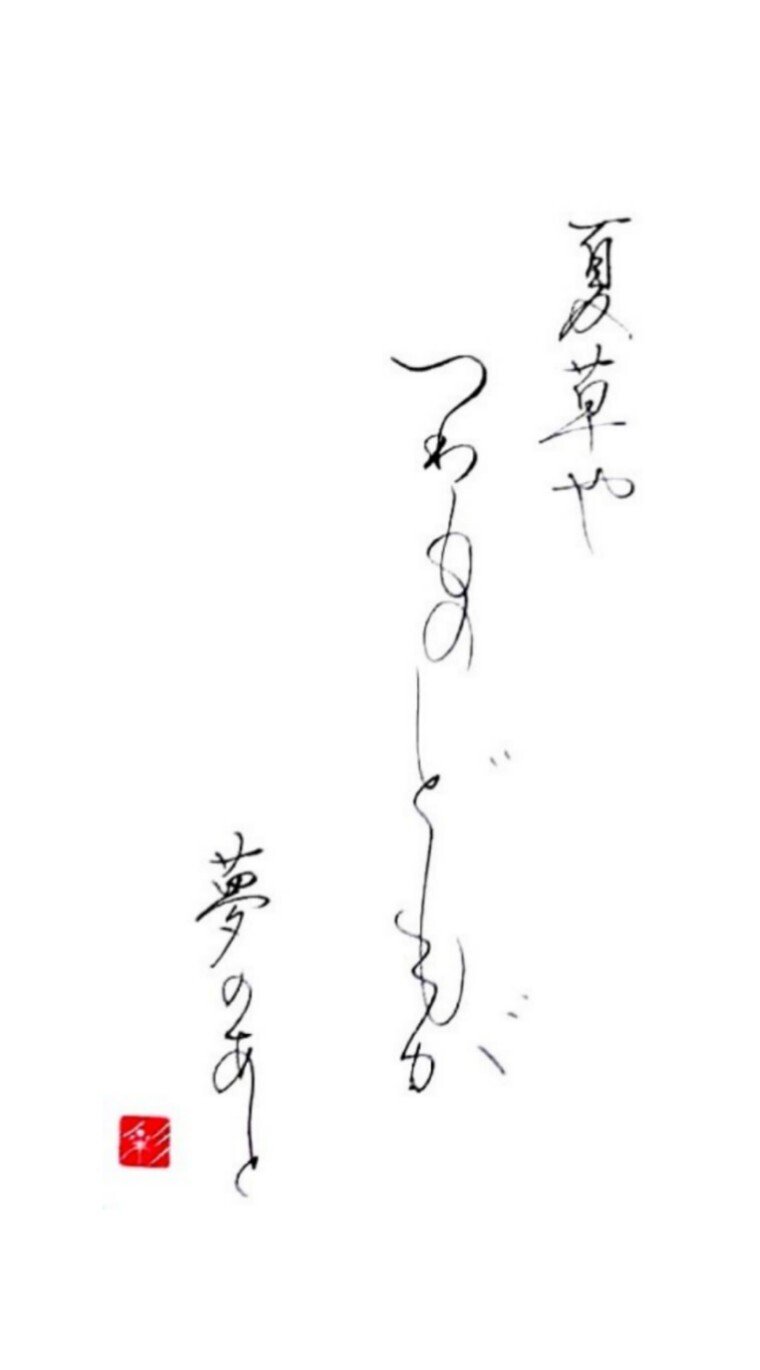 夏草や
つわものどもが
夢のあと
彩